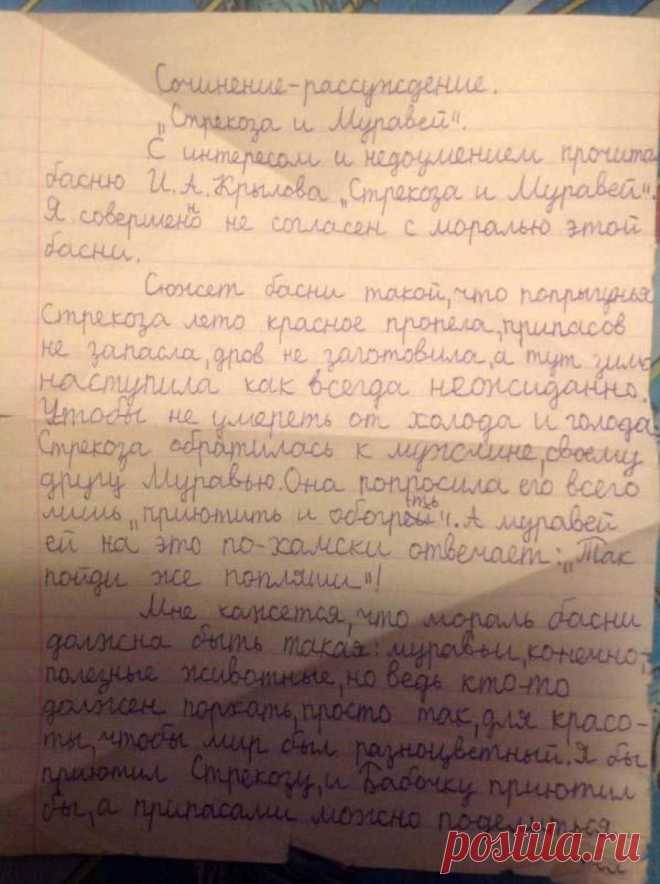 Сочинение-рассуждение.
„Стрекоза и Муравей".
С интересом и недоумением прочита
басню И.А.Крылова „Стрекоза и Муравей".
Я совершенно не согласен с моралью этой
басни.
Сюжет басни такой, что попрыгунья
Стрекоза лето красное пропела, припасов
не запасла, дров не заготовила, а тут зима
наступила как всегда неожиданно.
Чтобы не умереть от холода и голода,
Стрекоза обратилась к мужчине, своему
другу Муравью. Она попросила его всего
лишь „приютить и обогреть". А муравей
ей на это по-хамски отвечает: „Так
пойди же попляши"!
Мне кажется, что мораль басни
должна быть такая: муравьи, конечно,
полезные животные, но ведь кто-то
должен порхать, просто так, для красо-
ты, чтобы мир был разноцветный. Я бы
приютил Стрекозу, и Бабочку приютил
бы, а припасами можно поделиться
postila.ru